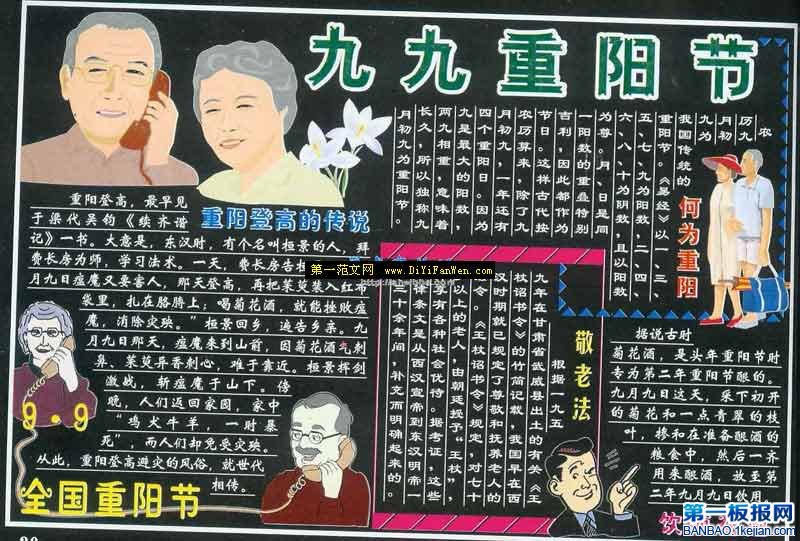 九九重阳节
农
历九
月初
九为
我国传统的
重阳节。《易经》以一、三、
五、七、九为阳数，二、四、
六、八、十为阴数，且以阳数
为尊。月、日是同
一阳数的重叠特别
吉利，因此都作为
节日。这样古代按
农历算来，除了九
月初九，一年还有
四个重阳日。因为
九是最大的阳数，
两九相重，意味着
长久，所以独称九
月初九为重阳节。
何为重阳
重阳登高的传说
重阳登高，最早见
于梁代吴钧《续齐谐
记》一书。大意是，东汉时，有个名叫桓景的人，拜
费长房为师，学习法术。一天，费长房告
月九日瘟魔又要害人，那天登高，再把茱萸装入红布
袋里，扎在胳膊上；喝菊花酒，就能挫败瘟
魔，消除灾殃。”桓景回乡，遍告乡亲。九
月九日那天，瘟魔来到山前，因菊花酒气刺
鼻、茱萸异香刺心，难于靠近。桓景挥剑
激战，斩瘟魔于山下。傍
晚，人们返回家园，家中
“鸡犬牛羊，一时暴
死”，而人们却免受灾殃。
从此，重阳登高避灾的风俗，就世代
相传。
9·9
全国重阳节
敬老法
根据一九五
九年在甘肃省武威县出土的有关《王
杖诏书令》的竹简记载，我国早在西
汉时期就已规定了尊敬和抚养老人的
令。《王杖诏书令》规定，对七十
以上的老人，由朝廷授予“王杖”，
有各种社会优待。据考证，这些
条文是从西汉宣帝到东汉明帝一
十余年间，补充而明确起来的。
据说古时
菊花酒，是头年重阳节时
专为第二年重阳节酿的。
九月九日这天，采下初开
的菊花和一点青翠的枝
叶，掺和在准备酿酒的
粮食中，然后一齐
用来酿酒，放至第
二年九月九日饮用。
第一范文网 www.DiYiFanWen.com
第一板报网
BANBAO.1kejian.com